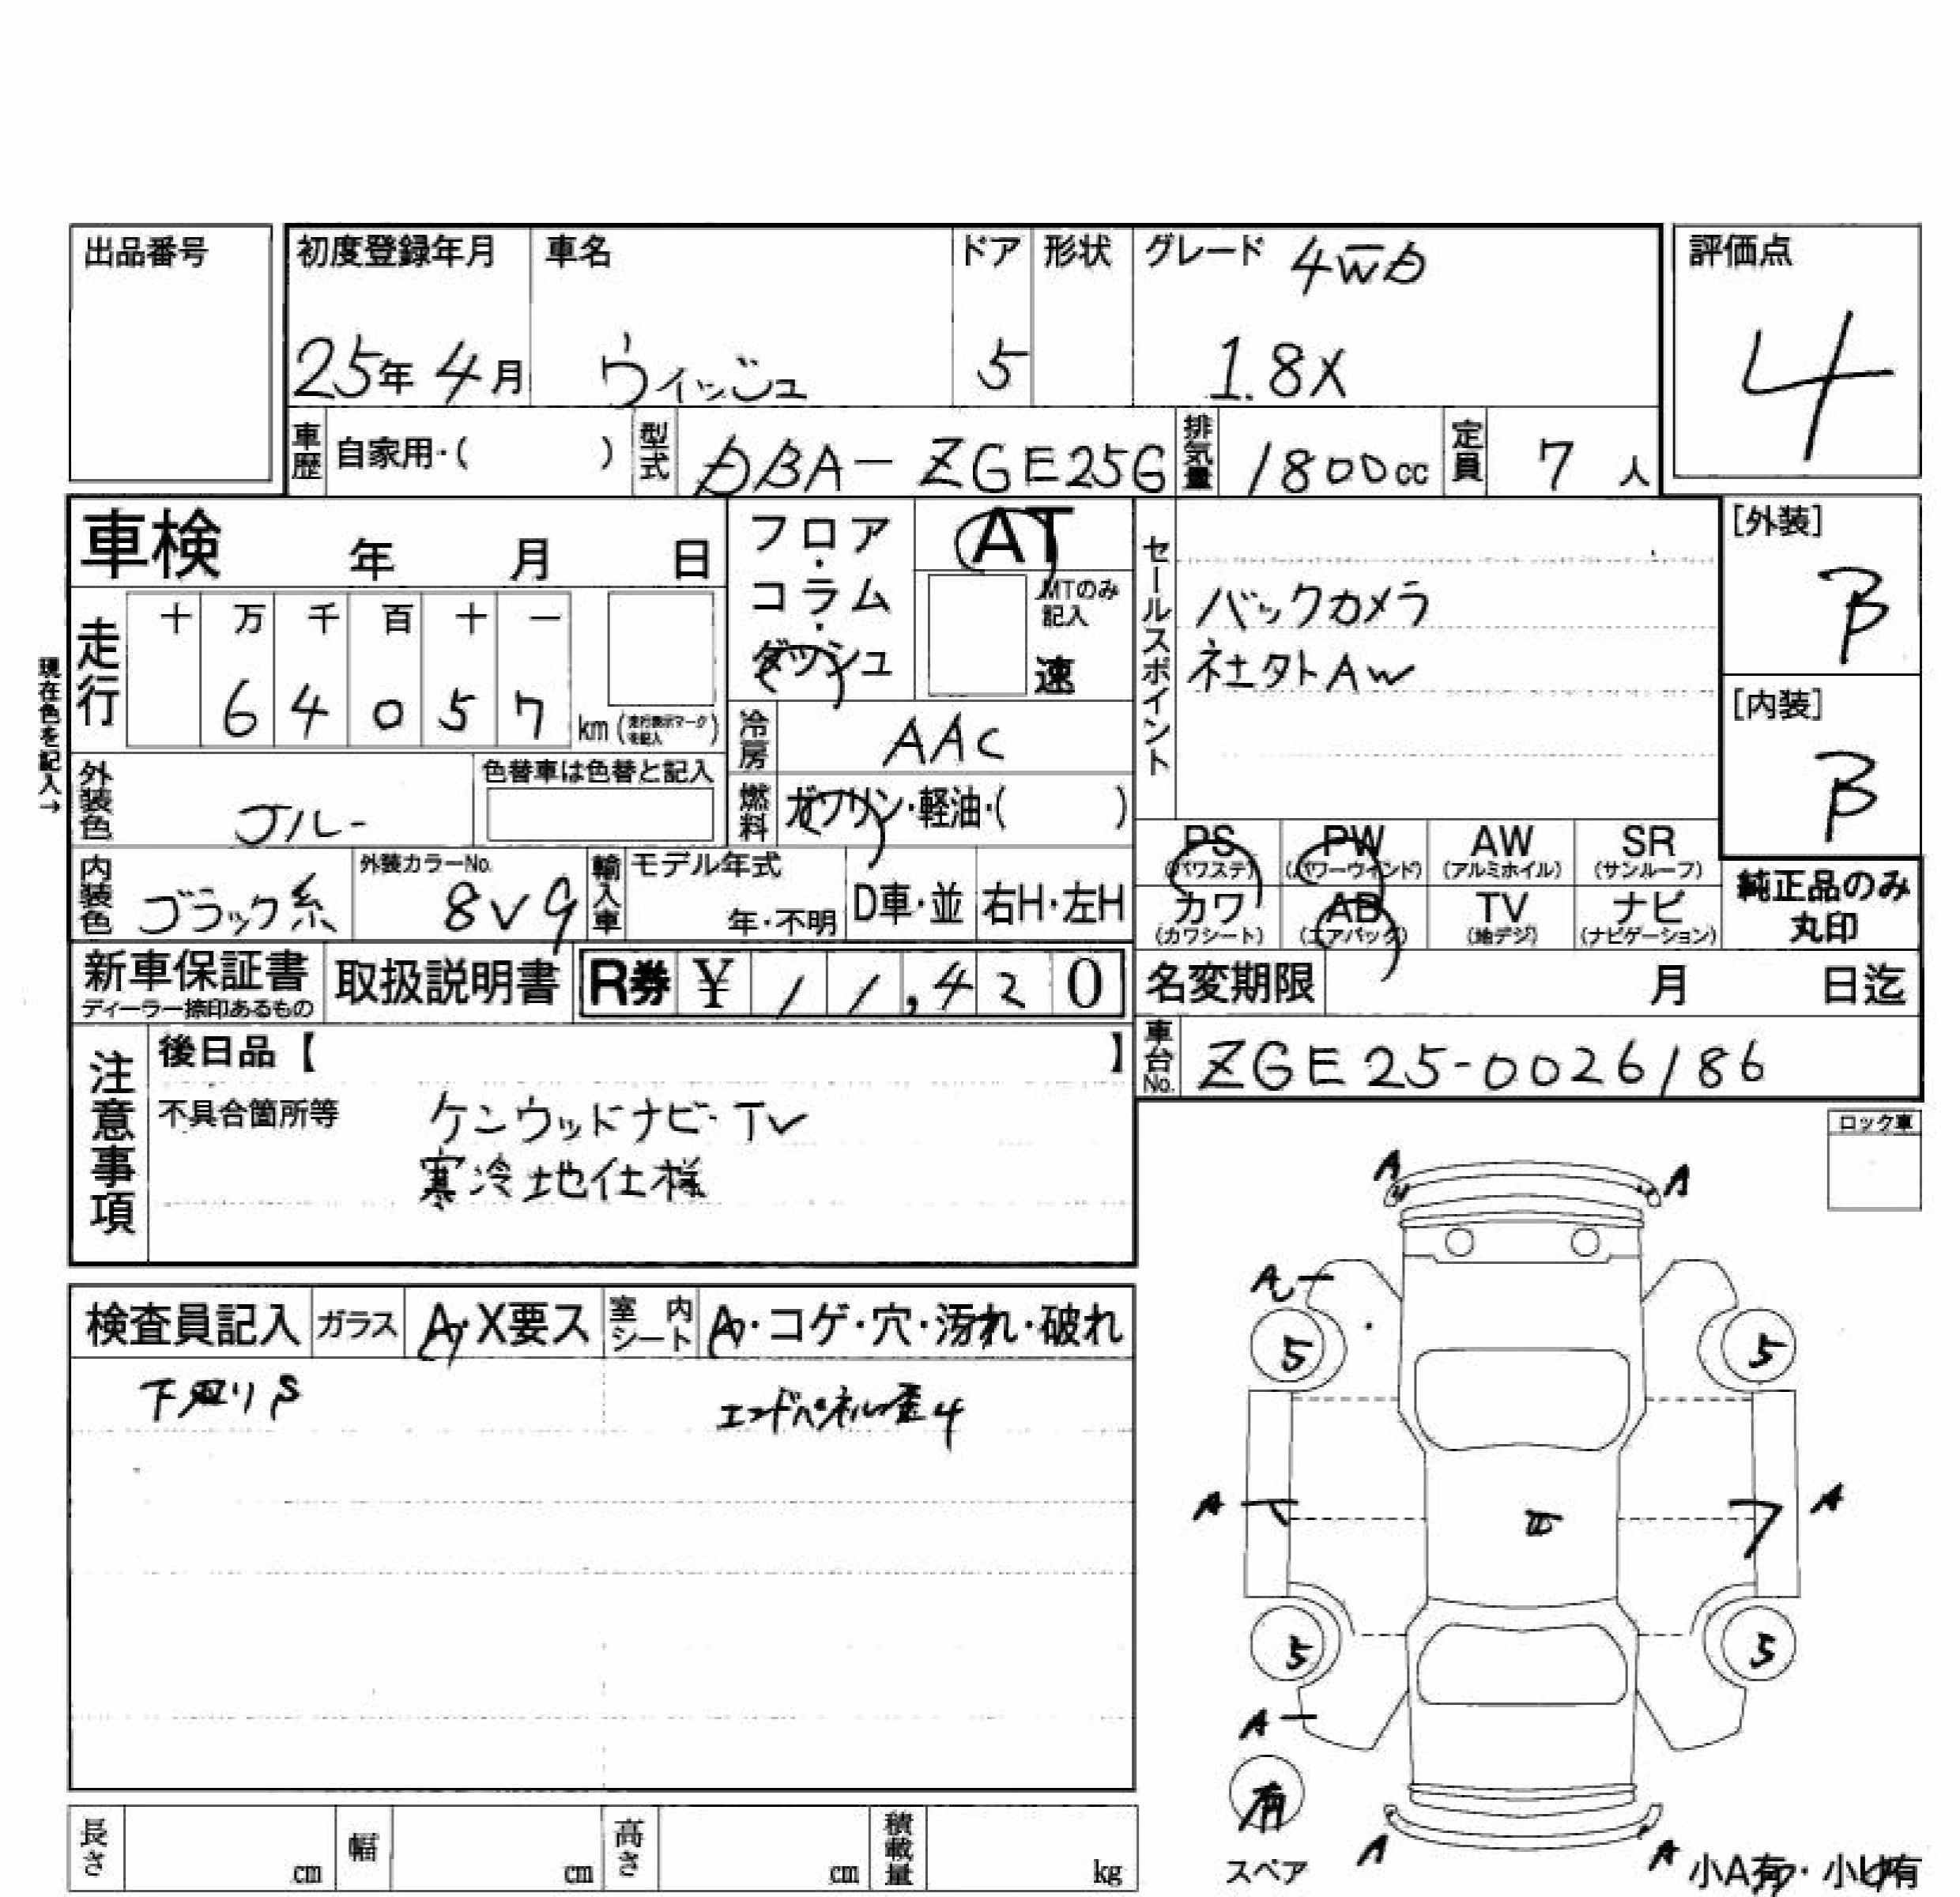 出品番号
初度登録年月 車名 ドア 形状 グレード 4WD 評価点
25年 4月 ウィッシュ 5 1.8X 4
車歴 自家用・( ) 型式 DBA-ZGE25G 排気量 1800cc 定員 7人
車検 年 月 日 フロア・コラム・ダッシュ AT
MTのみ記入 速
セールスポイント
バックカメラ
社外AW
[外装] B
[内装] B
現在色を記入→
走行 十 万 千 百 十 一
6 4 0 5 7 km (走行表示マークを記入)
冷房 AAC
外装色 ブルー 色替車は色替と記入
燃料 ガソリン・軽油・( )
内装色 ブラック系 外装カラーNo. 8V9 輸入車 モデル年式 年・不明 D車・並 右H・左H
PS (パワステ) PW (パワーウィンド) AW (アルミホイル) SR (サンルーフ)
カワ (カワシート) AB (エアバッグ) TV (地デジ) ナビ (ナビゲーション)
純正品のみ
丸印
新車保証書 ディーラー捺印あるもの 取扱説明書 R券 ¥ 11,420
名変期限 月 日迄
車台No. ZGE25-0026186
注意事項
後日品【 】
不具合箇所等 ケンウッドナビ・TV
寒冷地仕様
ロック車
検査員記入 ガラス A・X要ス 室内シート A・コゲ・穴・汚れ・破れ
下廻りS エンドパネル歪4
A A
A
5 5
A A
5 5
A
有
スペア
A A
小A有・小U有
長さ cm 幅 cm 高さ cm 積載量 kg